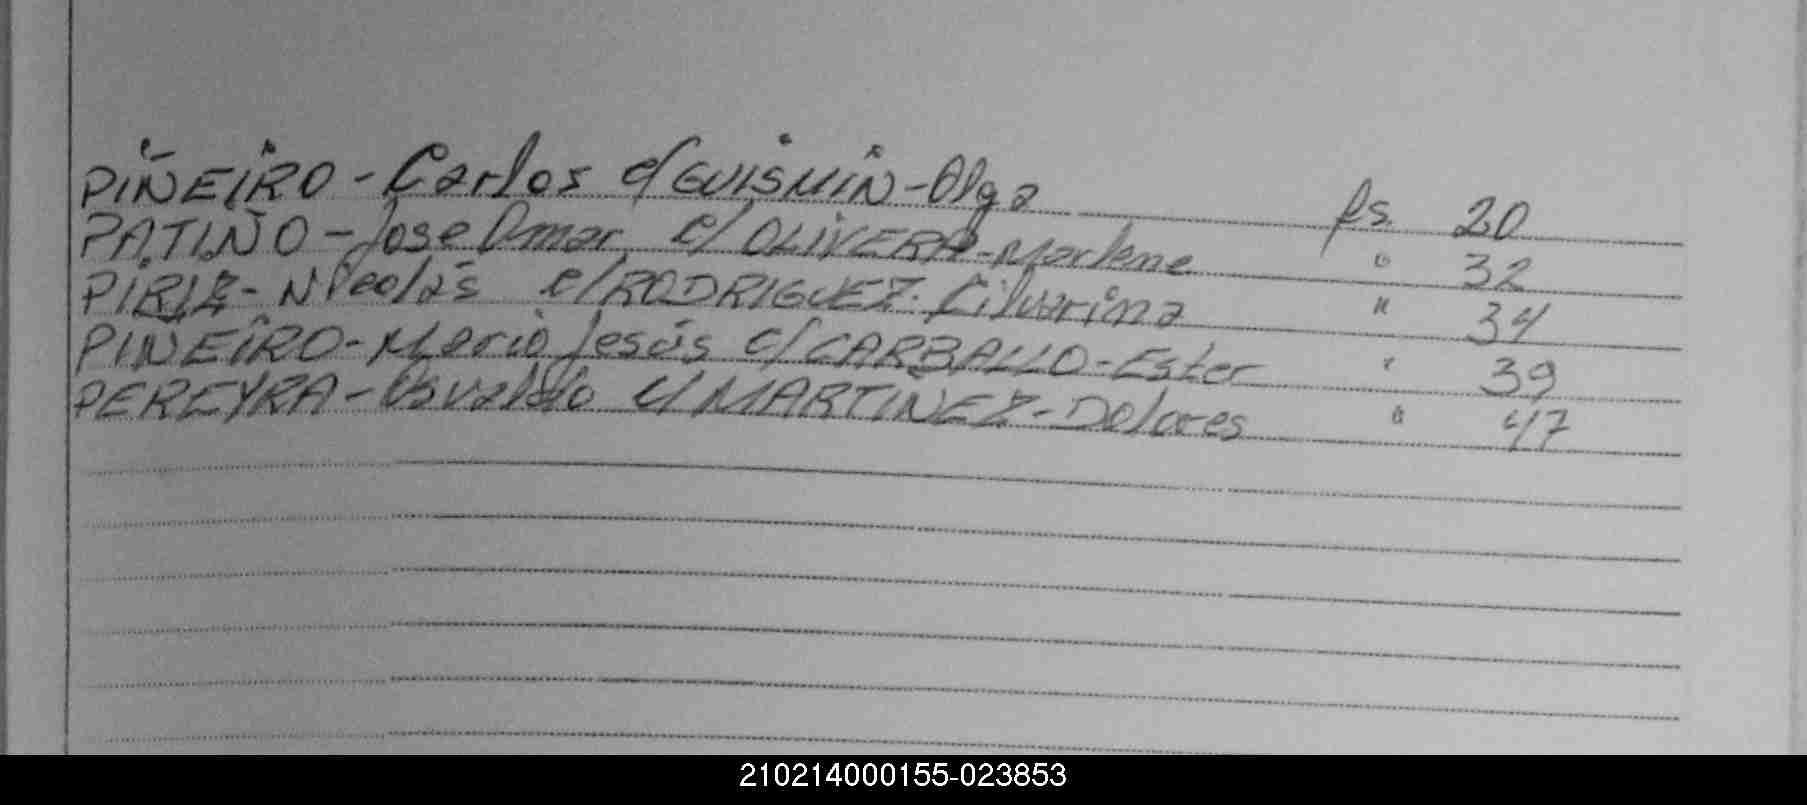 PIÑEIRO - Carlos c/ GUISMIN - Olga fs. 20
PATIÑO - Jose Omar c/ OLIVERA - Marlene " 32
PIRIZ - Nicolás c/ RODRIGUEZ - Silvarina " 34
PINEIRO - Mario Jesús c/ CARBALLO - Ester " 39
PEREYRA - Osvaldo c/ MARTINEZ - Dolores " 47
210214000155-023853